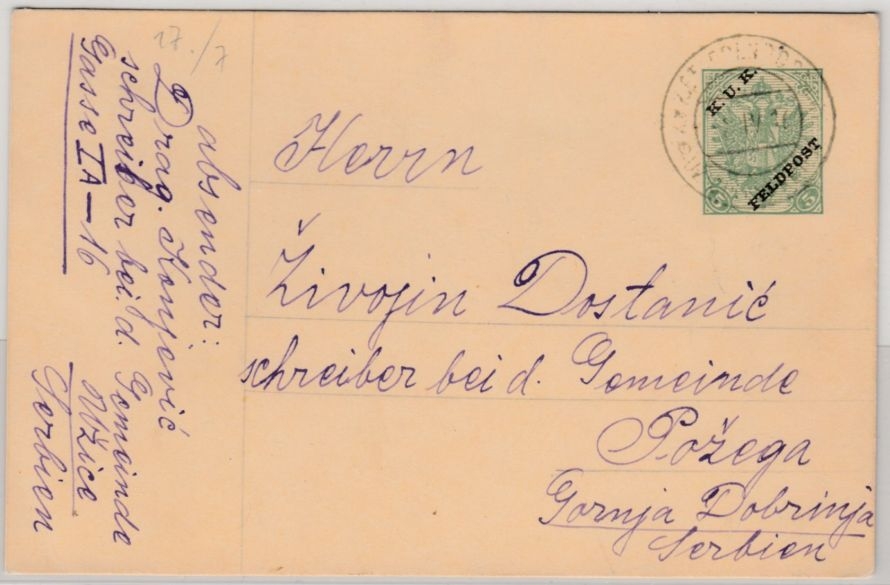 27./7
absender:
Drag. Konjević
schreiber bei d. Gemeinde
Užice
Gasse IA–16
Serbien
K. U. K.
FELDPOST
5 5
Herrn
Živojin Dostanić
schreiber bei d. Gemeinde
Požega
Gornja Dobrinja
Serbien